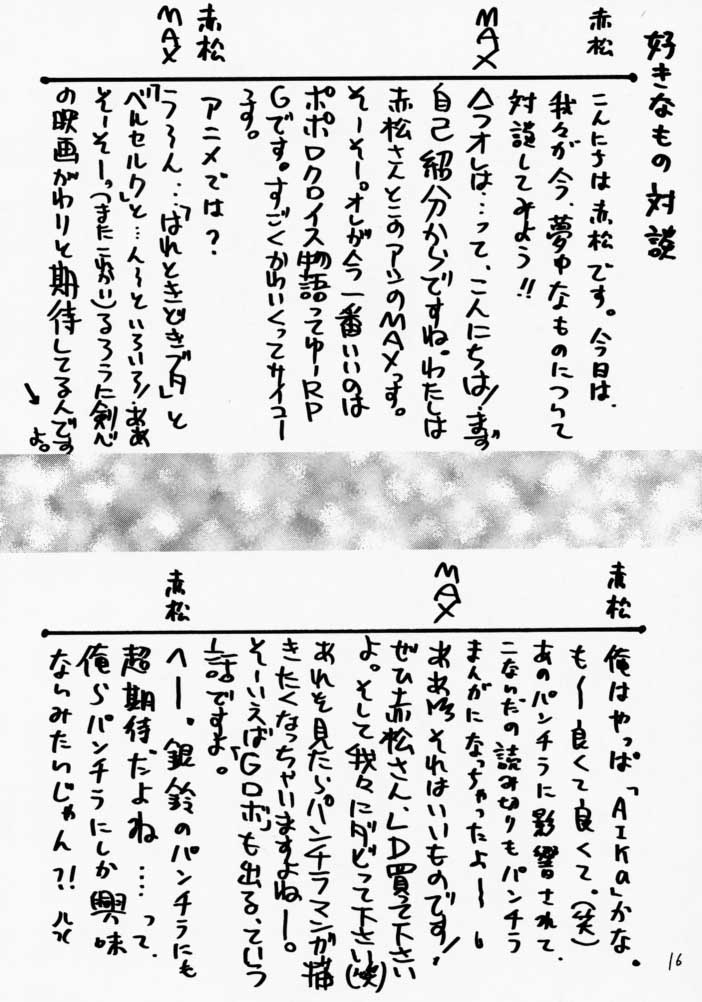 好きなもの対談
赤松
こんにちは赤松です。今日は、
我々が今、夢中なものについて
対談してみよう!!
MAX
△フオレは…って、こんにちは!まず
自己紹分からですね。わたしは
赤松さんとこのアシのMAXっす。
そーそー。オレが今一番いいのは
ポポロクロイス物語ってゆーRP
Gです。すごくかわいくってサイコー
です。
赤松
アニメでは?
MAX
う〜ん…「はれときどきブタ」と
「ベルセルク」と…ん〜といろいろ!ああ
そーそーっ(またこれかい)るろうに剣心
の映画がわりと期待してるんです
よ。
赤松
俺はやっぱ「AIKa」かな。
も〜良くて良くて。(笑)
あのパンチラに影響されて、
こないだの読み切りもパンチラ
まんがになっちゃったよ〜
MAX
ああ それはいいものです!
ぜひ赤松さん、LD買って下さい
よ。そして我々にダビって下さい(笑)
あれを見たらパンチラマンガ描
きたくなっちゃいますよねー。
そーいえば「Gロボ」も出る、ていう
話ですよ。
赤松
へー。銀鈴のパンチラにも
超期待だよね……って、
俺らパンチラにしか興味
ないみたいじゃん?!
16